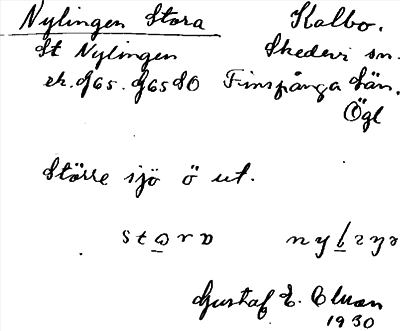 Nylingen Stora Kolbo.
St Nylingen Skedevi sn.
ek. J65. J65 SO Finspånga län.
Ögl
Större sjö ö ut.
Gustaf E.
1930